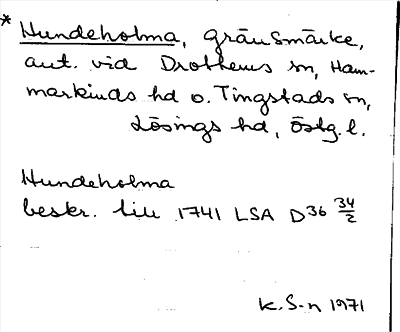 * Hundeholma, gränsmärke,
ant. vid Drothems sn, Ham-
markinds hd o. Tingstads sn,
Lösings hd, Östg. l.
Hundeholma
beskr. till 1741 LSA D36 34/2
K. S-n 1971